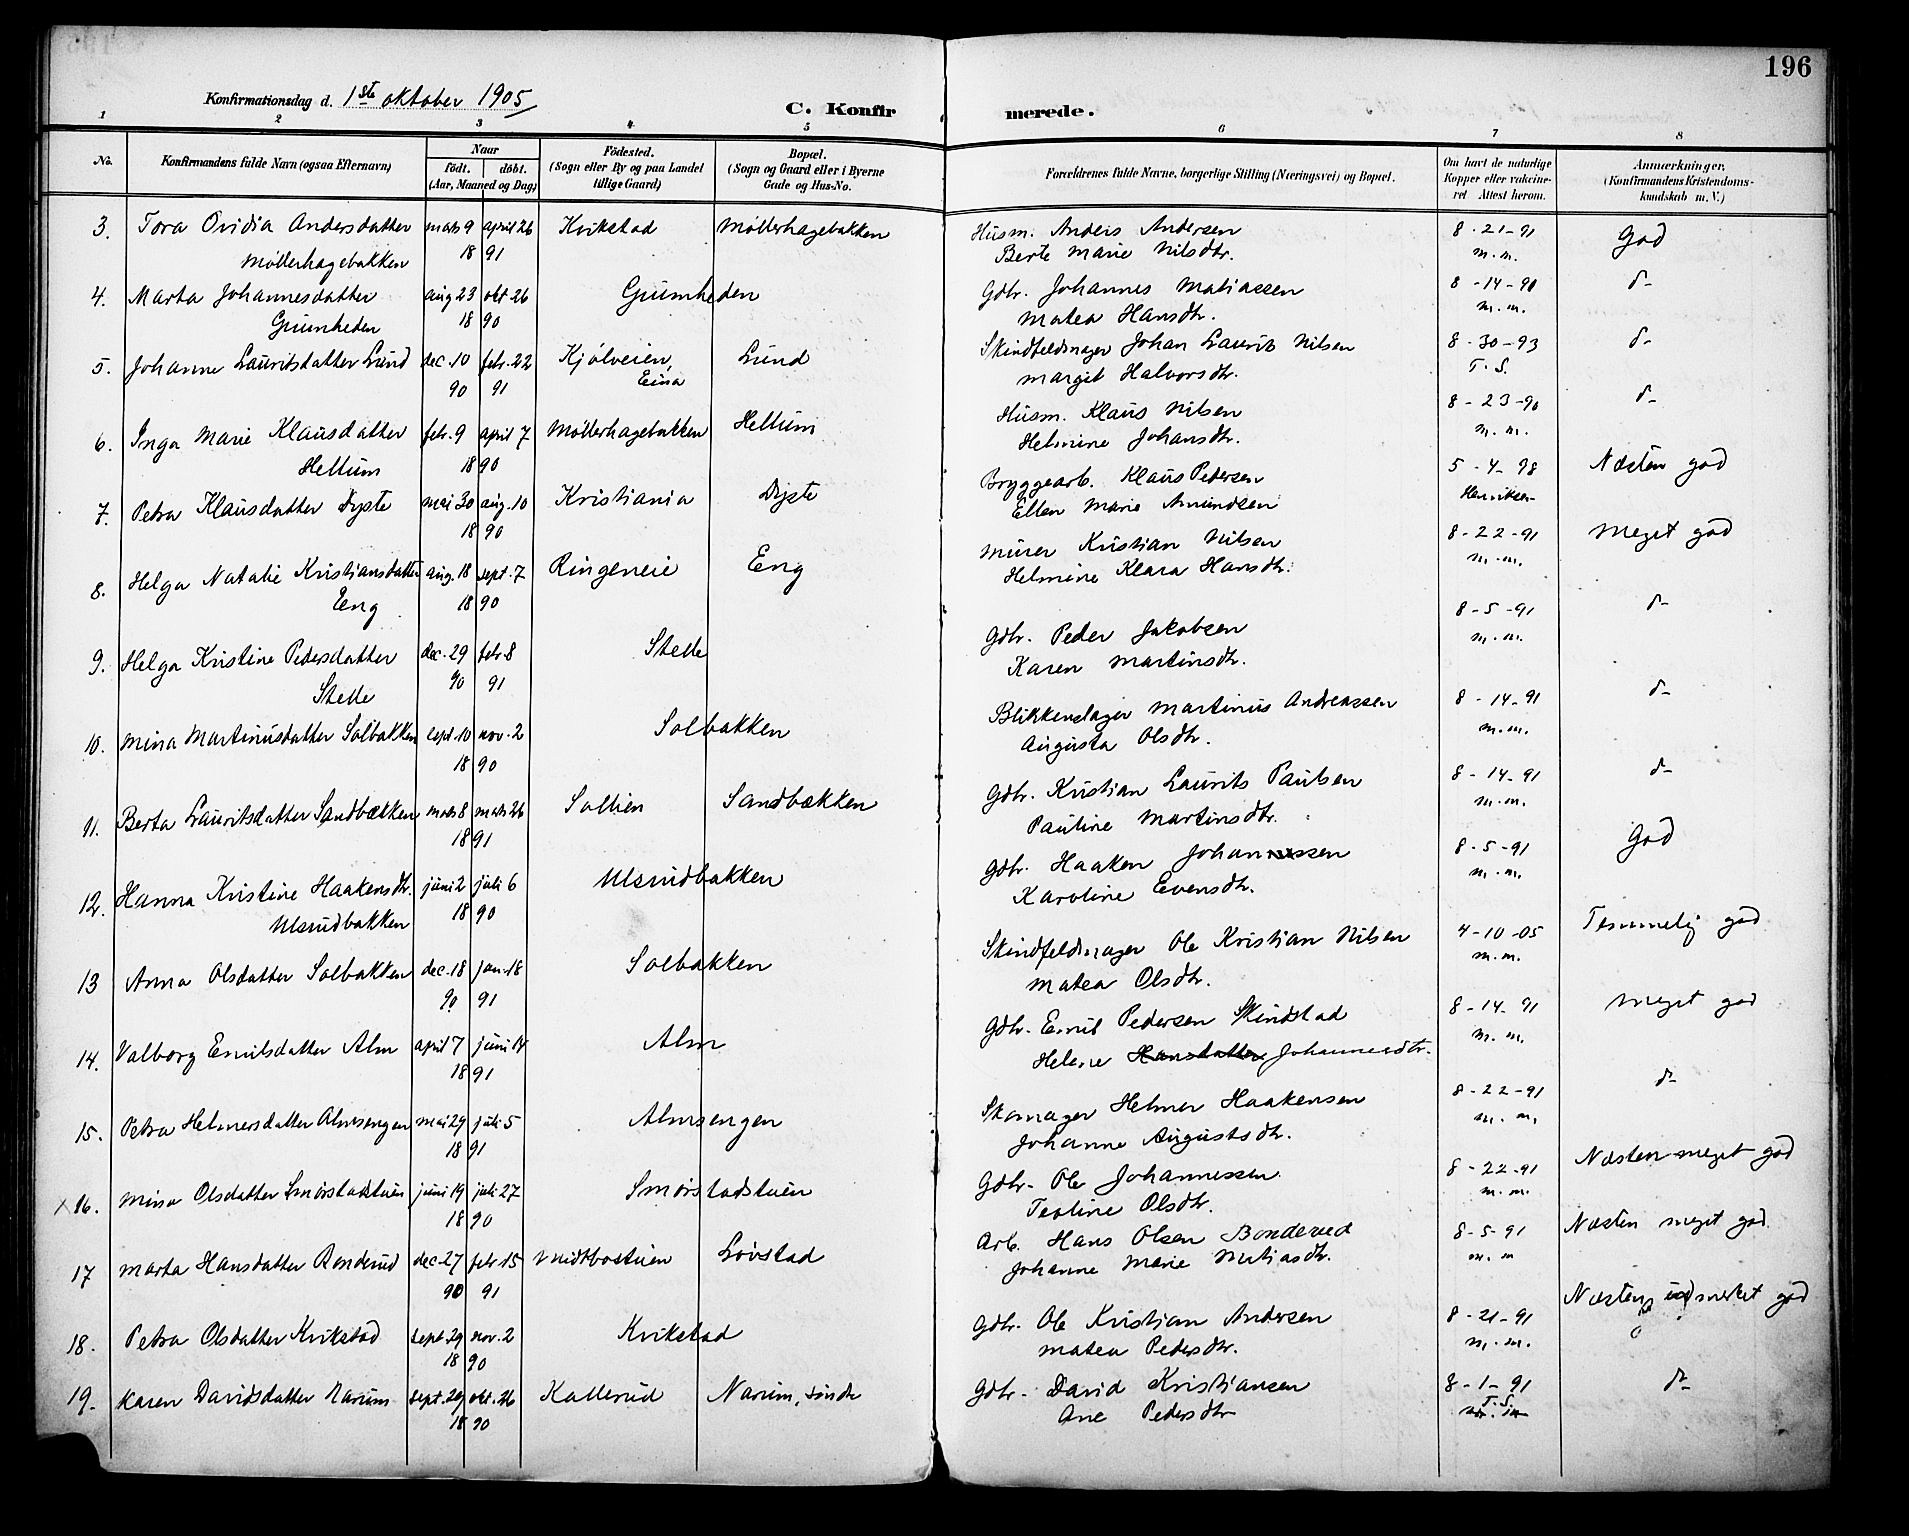 196
Konfirmationsdag d. 1ste oktober 1905
C. Konfirmerede.
1 2 3 4 5 6 7 8
No.
Konfirmandens fulde Navn (ogsaa Efternavn)
Naar
födt. döbt.
(Aar, Maaned og Dag)
Födested.
(Sogn eller By og paa Landet
tillige Gaard)
Bopæl.
(Sogn og Gaard eller i Byerne
Gade og Hus-No.
Forældrenes fulde Navne, borgerlige Stilling (Næringsvei) og Bopæl.
Om havt de naturlige
Kopper eller vakcine-
ret Attest herom.
Anmærkninger,
(Konfirmandens Kristendoms-
kundskab m. V.)
3. Tora Ovidia Andersdatter mars 9 april 26 Kvikstad Møllerhagebakken Husm. Anders Andersen 8-21-91 God
Møllerhagebakken 18 91 Berte Marie Nilsdtr. m.m.
4. Marta Johannesdatter aug 23 okt 26 Grimheden Gdbr. Johannes Matiassen 8-14-90 d-
Grimheden 18 90 Matea Hansdtr. m.m.
5. Johanne Lauritsdatter Lund dec. 10 febr. 22 Kjølveien, Lund Skindfeldmager Johan Laurits Nilsen 8-30-93 d-
90 91 Eina Margit Halvorsdtr. T.S.
6. Inga Marie Klausdatter febr. 9 april 7 Møllerhagebakken Hellum Husm. Klaus Nilsen 8-23-90 d-
Hellum 18 90 Helmine Johansdtr. m.m.
7. Petra Klausdatter Dyste mai 30 aug. 10 Kristiania Dyste Bryggearb. Klaus Pedersen 5-4-98 Næsten god
18 90 Ellen Marie Amundsen Henriksen
8. Helga Natalie Kristiansdatter aug. 18 sept. 7 Ringeneie Eng Murer Kristian Nilsen 8-22-91 Meget god
Eng 18 90 Helmine Klara Hansdtr. m.m.
9. Helga Kristine Pedersdatter dec. 29 febr 8 Stelle Gdbr. Peder Jakobsen 8-5-91 d-
Stelle 90 91 Karen Martinsdtr. m.m.
10. Mina Martinusdatter Solbakken sept. 10 nov. 2 Solbakken Blikkenslager Martinus Andreassen 8-14-91 d-
18 90 Augusta Olsdtr. m.m.
11. Berta Lauritsdatter Sandbækken mars 8 mars 26 Sollien Sandbækken Gdbr. Kristian Laurits Paulsen 8-14-91 d-
18 91 Pauline Martinsdtr. m.m.
12. Hanna Kristine Haakensdtr. juni 2 juli 6 Ulsrudbakken Gdbr. Haaken Johannessen 8-5-91 God
Ulsrudbakken 18 90 Karoline Evensdtr. m.m.
13 Anna Olsdatter Solbakken dec. 18 jan. 18 Solbakken Skindfeldmager Ole Kristian Nilsen 4-10-05 Temmelig god
90 91 Matea Olsdtr. m.m.
14. Valborg Emilsdatter Alm april 7 juni 14 Alm Gdbr. Emil Pedersen Skindstad 8-14-91 Meget god
18 91 Helene Hansdatter Johannesdtr. m.m.
15. Petra Helmersdatter Almsengen mai 29 juli 5 Almsengen Skomager Helmer Haakensen 8-22-91 d-
18 91 Johanne Augustsdtr. m.m.
x 16. Mina Olsdatter Smørstadstuen juni 19 juli 27 Smørstadstuen Gdbr. Ole Johannessen 8-22-91 Næsten meget god
18 90 Teoline Olsdtr. m.m.
17 Marta Hansdatter Bonderud dec. 27 febr 15 Midtbostuen Løvstad Arb. Hans Olsen Bonderud 8-5-91 Næsten meget god
90 91 Johanne Marie Matiasdtr. m.m
18. Petra Olsdatter Kvikstad sept. 29 nov. 2 Kvikstad Gdbr. Ole Kristian Andersen 8-21-91 Næsten udmerket god
18 90 Matea Pedersdtr. m.m.
19. Karen Davidsdatter Narum sept. 29 okt. 26 Kallerud Narum, søndre Gdbr. David Kristiansen 8-1-91 d-
18 90 Ane Pedersdtr T.S.
m.m